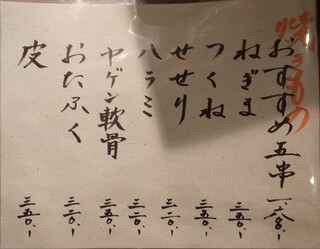 焼きもの
おすすめ五串
ねぎま 三五〇.-
つくね 三五〇.-
せせり 三二〇.-
ハラミ 三二〇.-
ヤゲン軟骨 三五〇.-
おたふく 三二〇.-
皮 三五〇.-